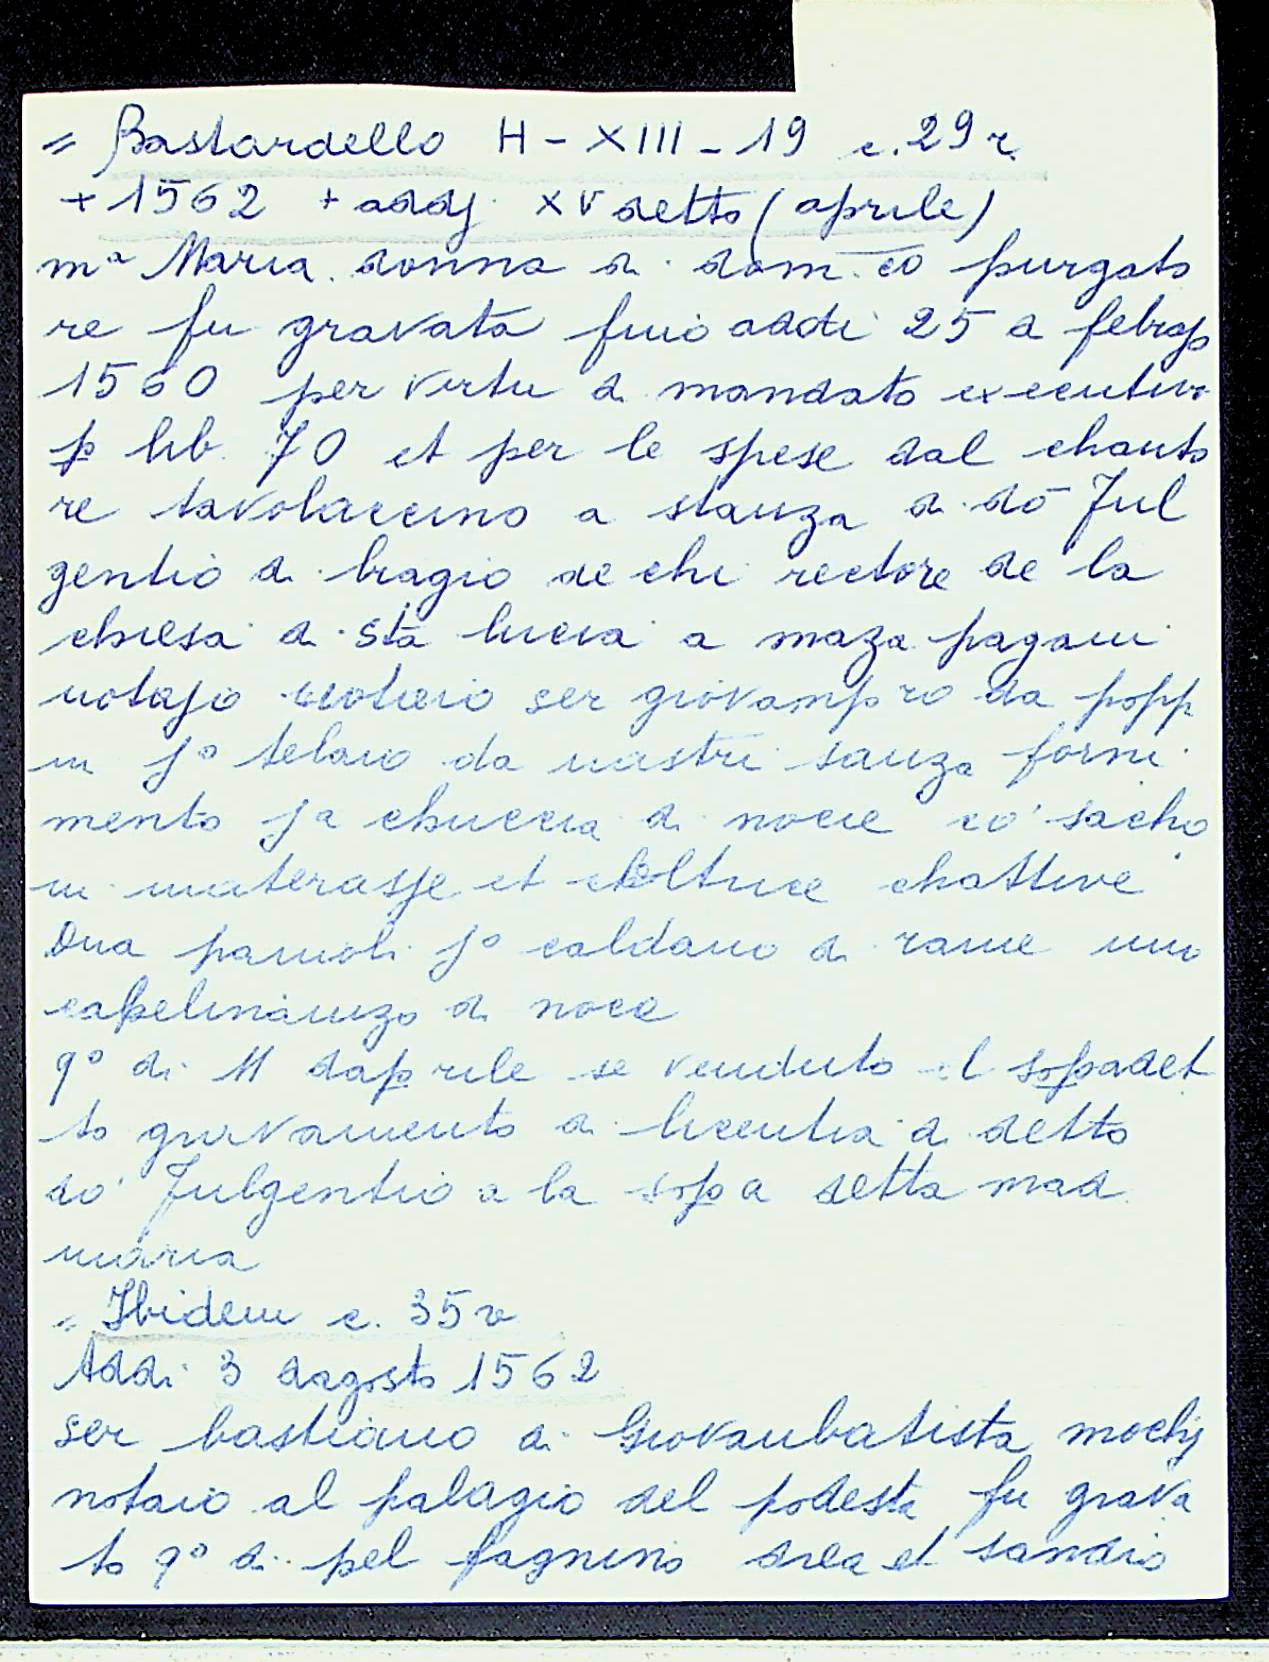 = Bastardello H - XIII - 19 c. 29 r.
+ 1562 + addj XV detto (aprile)
mª Maria donna di dom.co purgato
re fu gravata fino addi 25 di febrajo
1560 per virtu di mandato executivo
p lib. 70 et per le spese dal chanto
re tavolaccino a stanza di dō Ful
gentio di biagio de chi rectore de la
chiesa di sta lucia a maza pagani
notajo ser giovampro da popp
in jº telaio da nastri sanza forni
mento jª chuccia di nocie co' sacho
ni materasse et choltrice chattive
Dua paiuoli jº caldano di rame uno
capelinaiuzo di noce
qº di 11 daprile se venduto el sopadet
to gravamento di licentia di detto
do' Fulgentio a la sopa detta mad.
maria
= Ibidem c. 35 v
Addi 3 dagosto 1562
ser bastiano di Giovanbatista mochj
notaio al palagio del podesta fu grava
to qº di pel fagnino et sandro